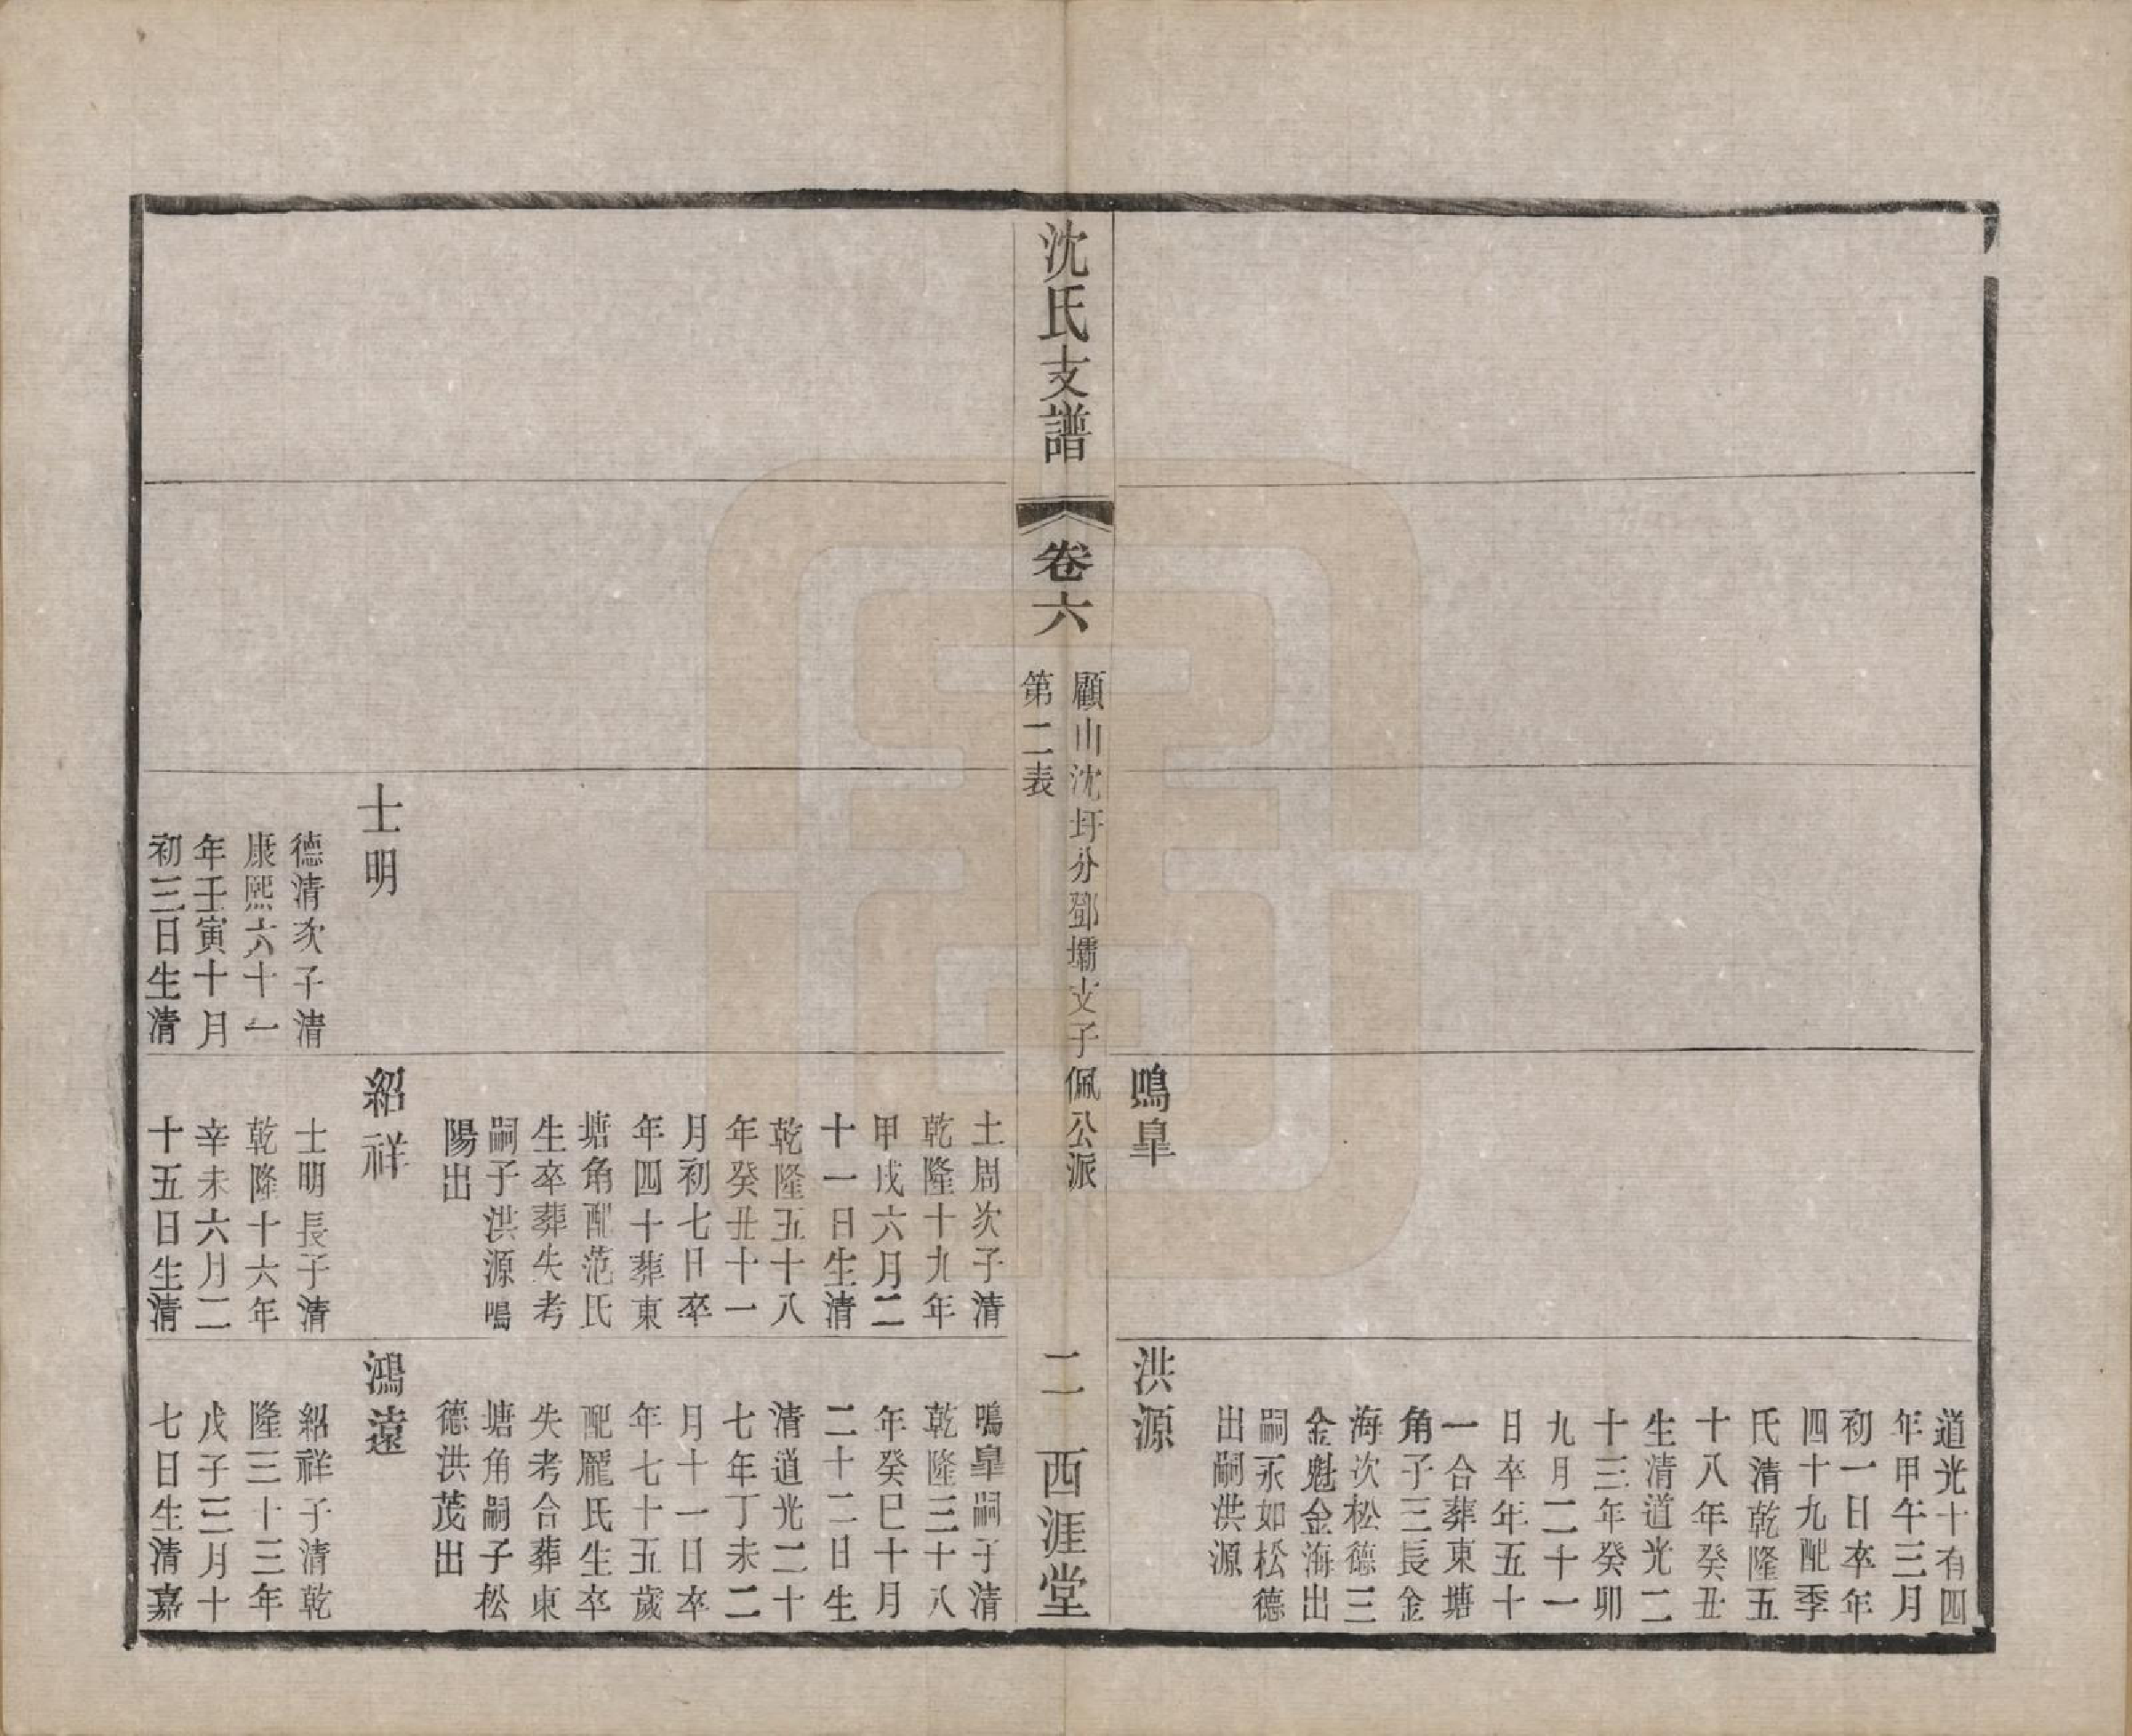 道光十有四
年甲午三月
初一日卒年
四十九配季
氏清乾隆五
十八年癸丑
生清道光二
十三年癸卯
九月二十一
日卒年五十
一合葬東塘
角子三長金
海次松德三
金魁金海出
嗣永如松德
出嗣洪源
鳴臯
洪源
沈氏支譜
卷六
顧山沈圩分鄧壩支子佩公派
第二表
二
西涯堂
士周次子清
乾隆十九年
甲戌六月二
十一日生清
乾隆五十八
年癸丑十一
月初七日卒
年四十葬東
塘角配范氏
生卒葬失考
嗣子洪源鳴
陽出
鳴臯嗣子清
乾隆三十八
年癸巳十月
二十二日生
清道光二十
七年丁未二
月十一日卒
年七十五歲
配龎氏生卒
失考合葬東
塘角嗣子松
德洪茂出
士明
德清次子清
康熙六十一
年壬寅十月
初三日生清
紹祥
士明長子清
乾隆十六年
辛未六月二
十五日生清
鴻遠
紹祥子清乾
隆三十三年
戊子三月十
七日生清嘉